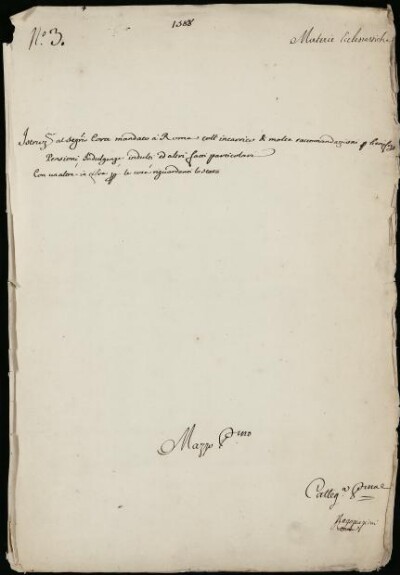 1588
N.º 3.
Materie Ecclesiastiche
Istruz.ne al Sig.r Cora mandato à Roma coll' incarrico di molte raccommandazioni p
Pensioni, Indulgenze indulti ed altri fatti particolari
Con un altra in cifra p le cose riguardanti lo stato
Mazzo P.mo
Categ.a P.ma